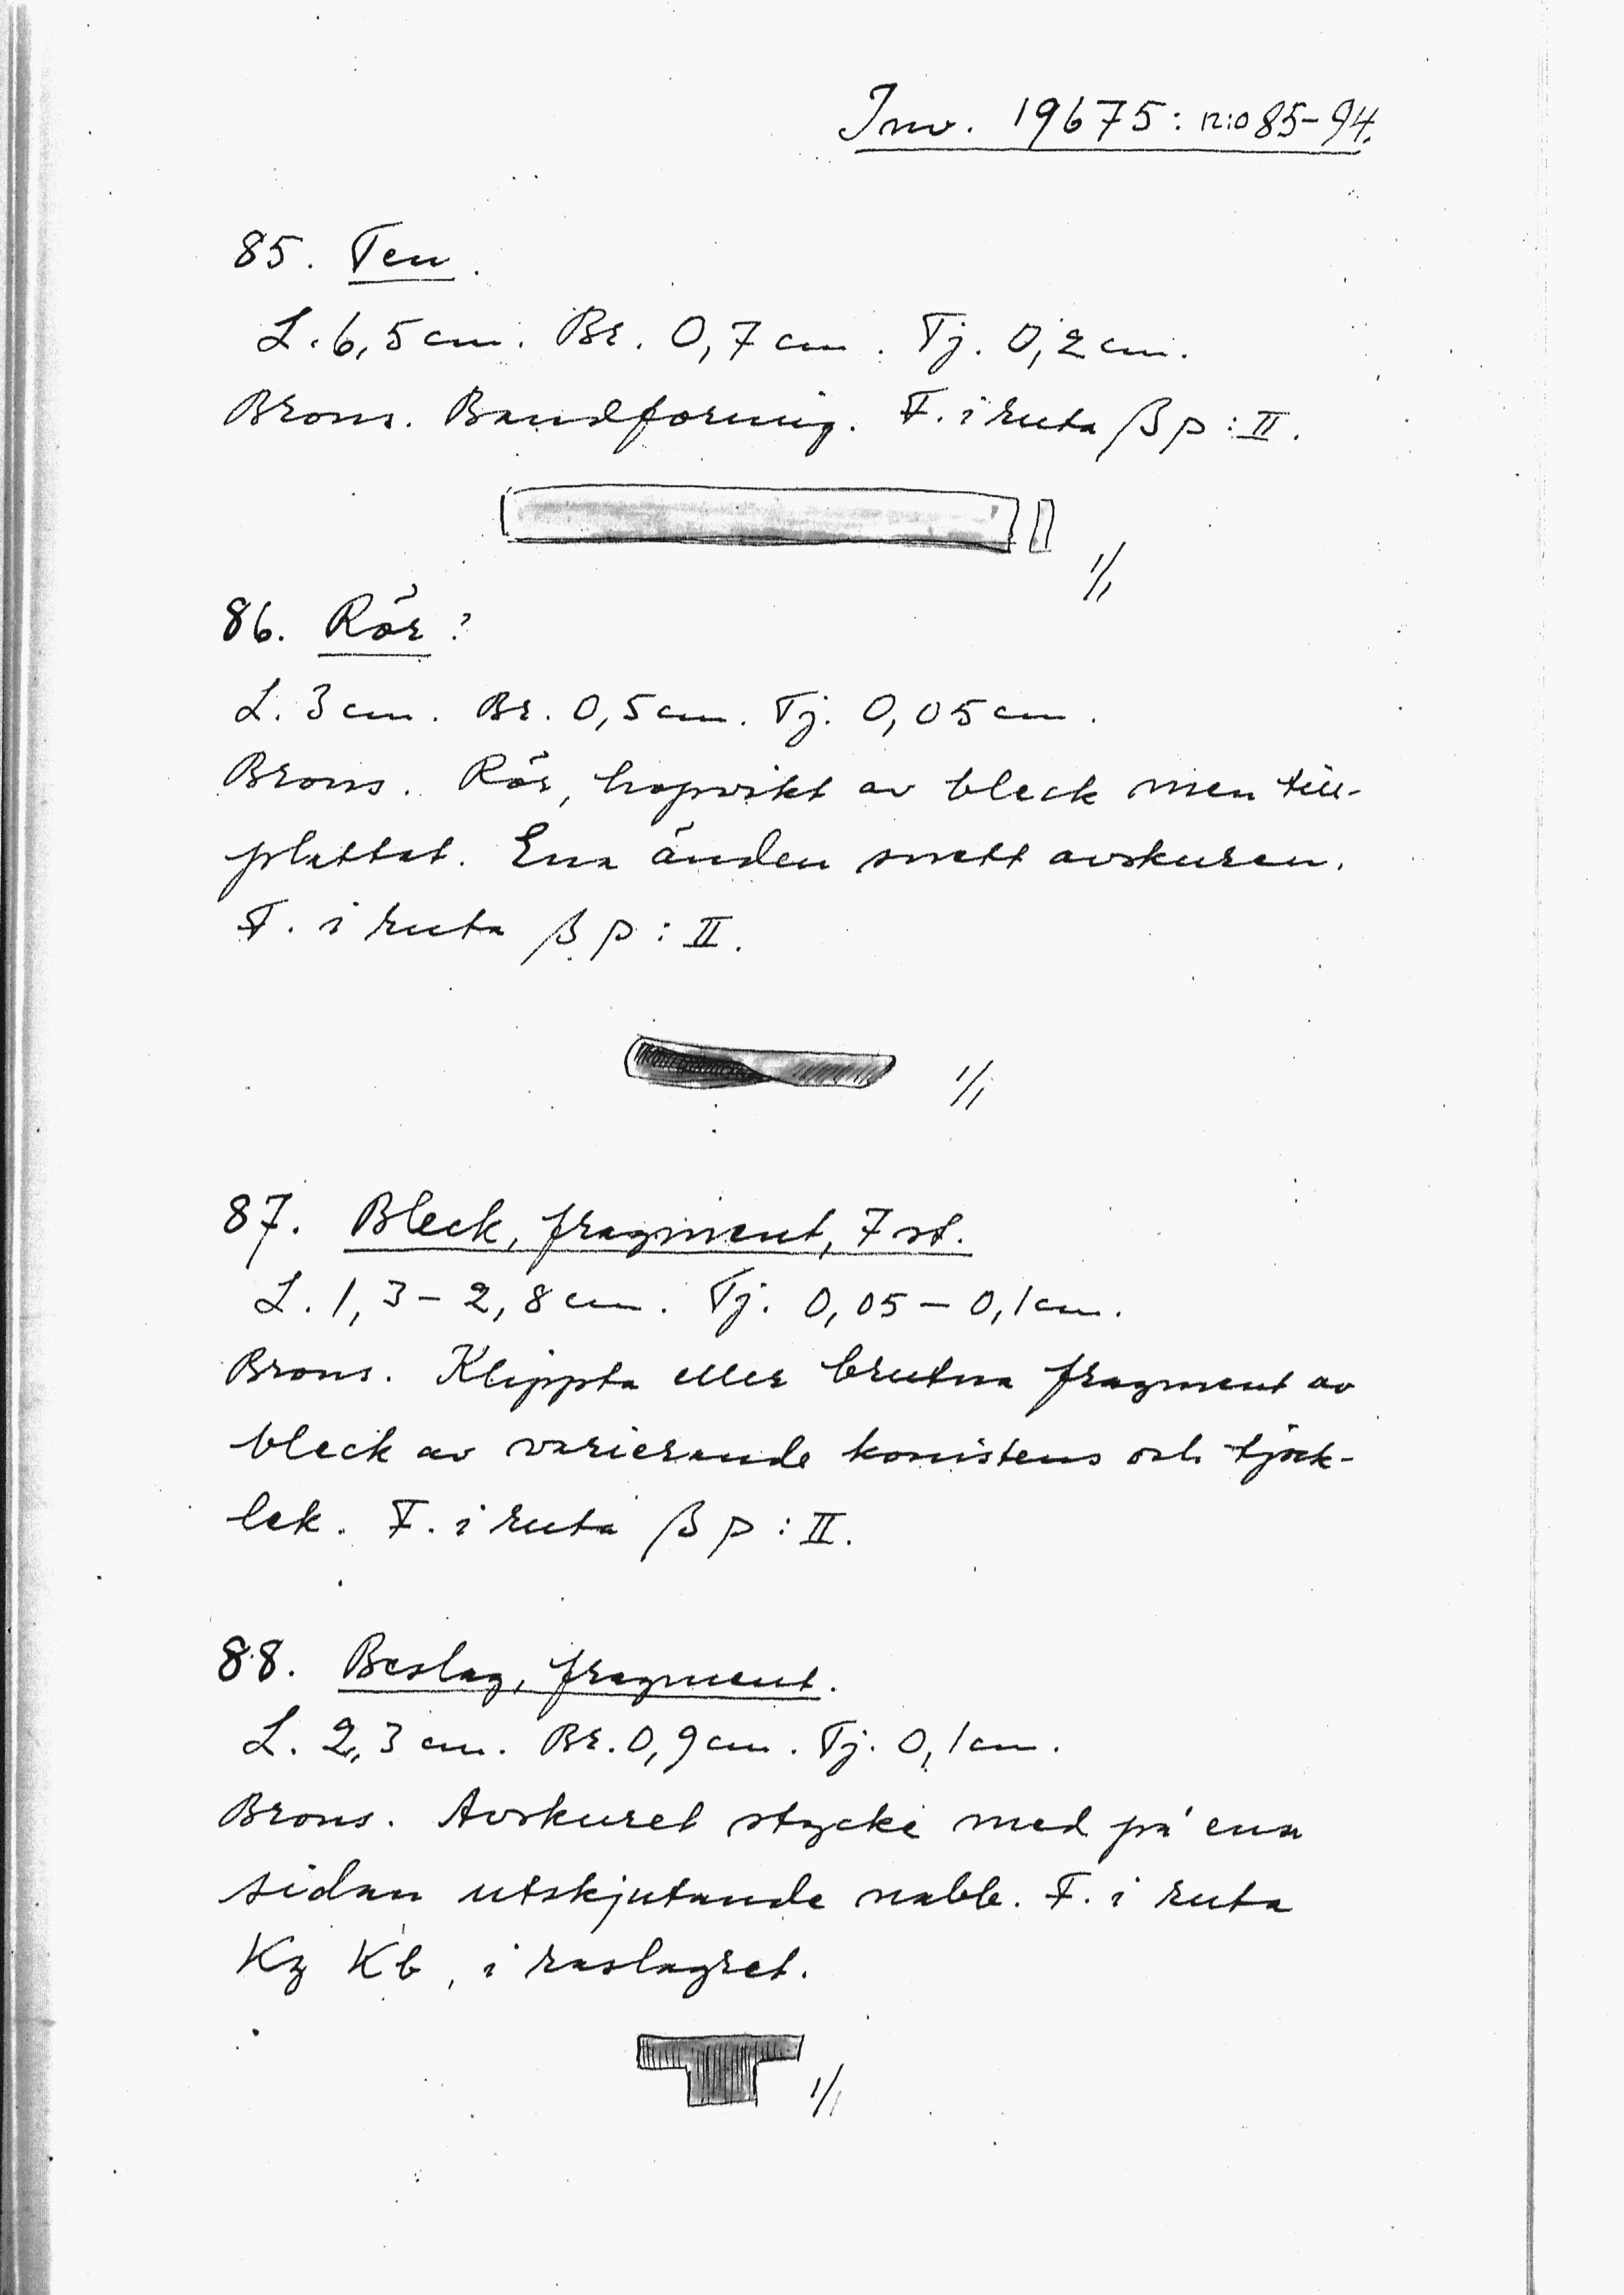 Inv. 19675: n:o 85-94.
85. Ten.
L. 6,5 cm. Br. 0,7 cm. Tj. 0,2 cm.
Brons. Bandformig. F. i ruta β p : II.
1/1
86. Rör ?
L. 3 cm. Br. 0,5 cm. Tj. 0,05 cm.
Brons. Rör, hopvikt av bleck men till-
plattat. Ena änden snett avskuren.
F. i ruta β p : II.
1/1
87. Bleck, fragment, 7 st.
L. 1,3 - 2,8 cm. Tj. 0,05 - 0,1 cm.
Brons. Klippta eller brutna fragment av
bleck av varierande konsistens och tjock-
lek. F. i ruta β p : II.
88. Beslag, fragment.
L. 2,3 cm. Br. 0,9 cm. Tj. 0,1 cm.
Brons. Avskuret stycke med på ena
sidan utskjutande nabb. F. i ruta
Kz Kb, i raslagret.
1/1